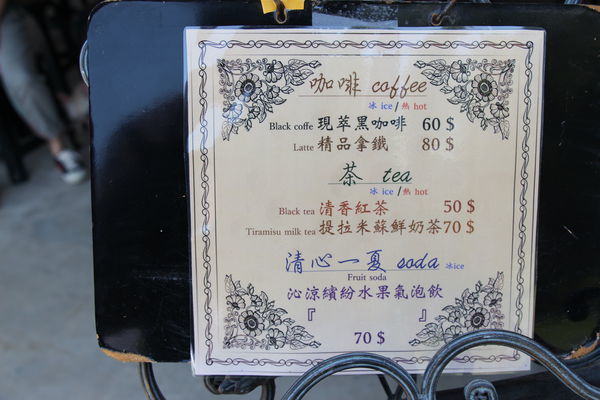 咖啡 coffee
冰 ice/熱 hot
Black coffe 現萃黑咖啡 60 $
Latte 精品拿鐵 80 $
茶 tea
冰 ice/熱 hot
Black tea 清香紅茶 50 $
Tiramisu milk tea 提拉米蘇鮮奶茶 70 $
清心一夏 soda 冰ice
Fruit soda
沁涼繽紛水果氣泡飲
『 』
70 $